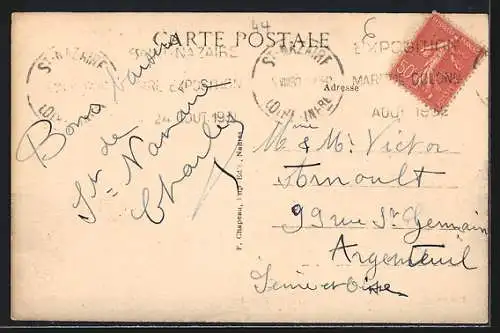 44
CARTE POSTALE
ST-NAZAIRE
LOIRE INFRE
ST-NAZAIRE
EXPOSITION
24 AOUT 1932
ST-NAZAIRE
LOIRE INFRE
EXPOSITION
MARITIME COLONIALE
AOUT 1932
50
Adresse
Bons baisers
de St-Nazaire
Charles
Mme & Mr Victor
Arnoult
99 rue St Germain
Argenteuil
Seine et Oise
F. Chapeau, Imp. Edit., Nantes